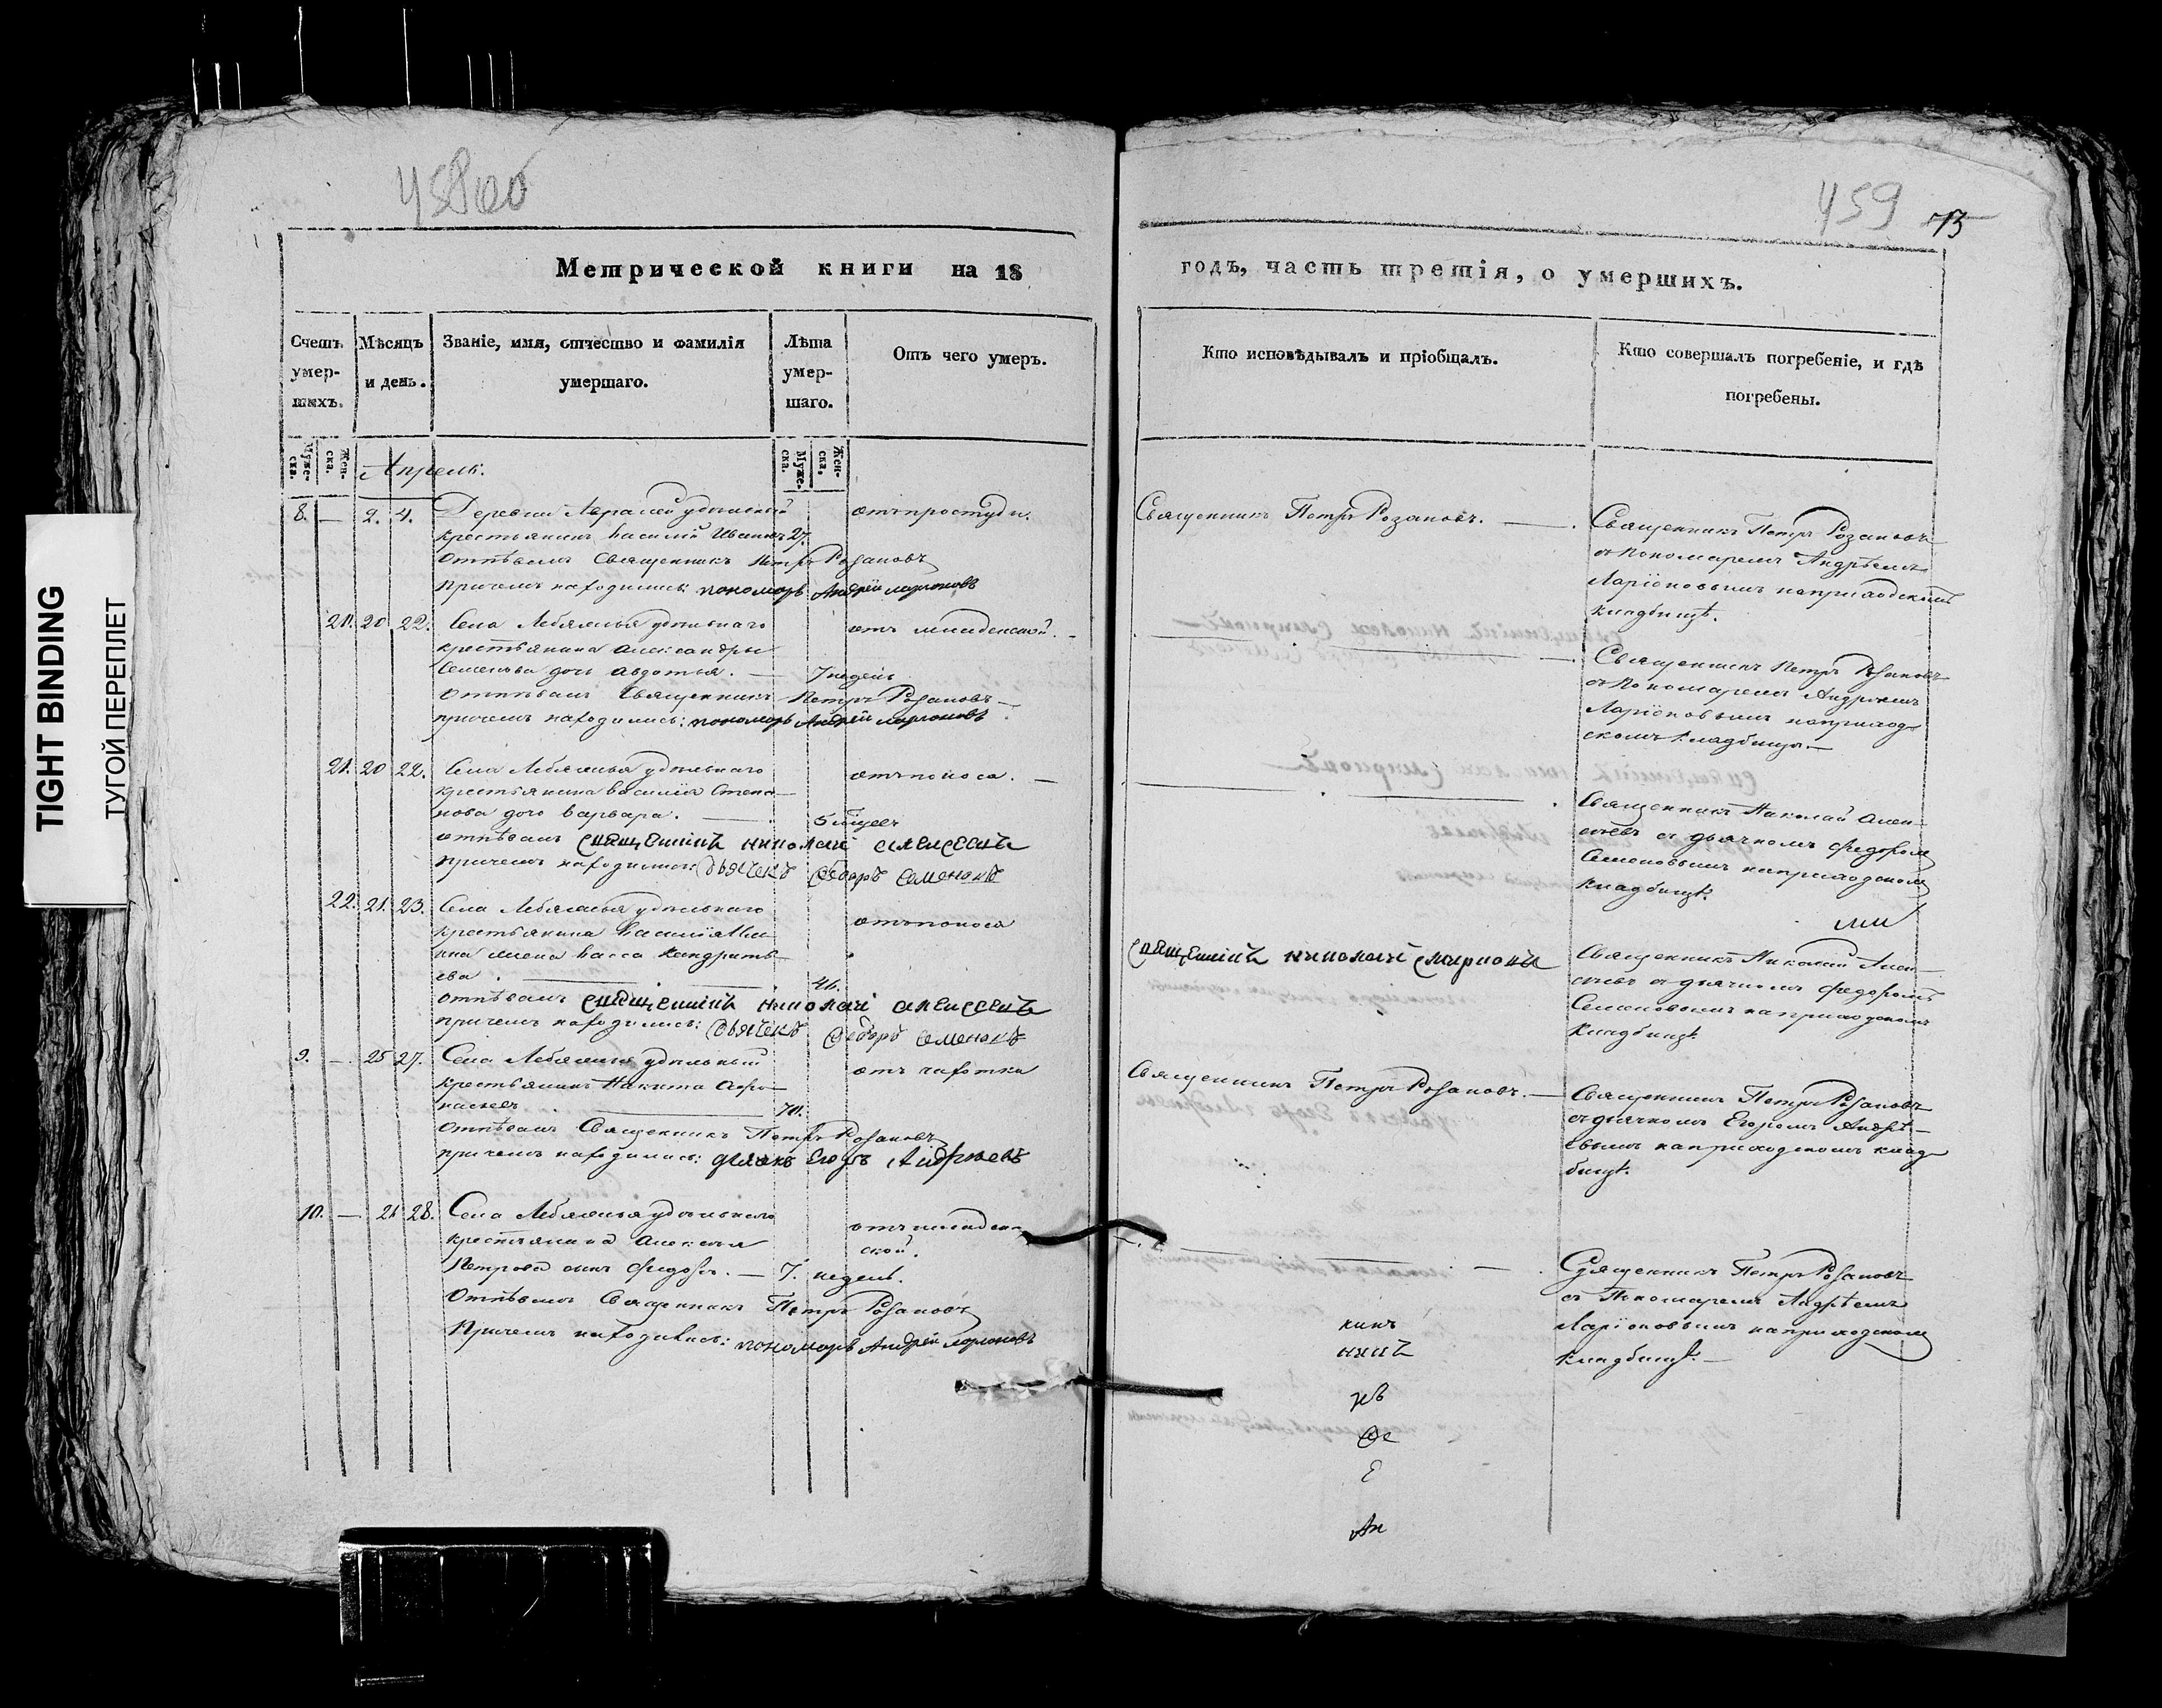 TIGHT BINDING
ТУГОЙ ПЕРЕПЛЕТ
458 об
459
73
Метрической книги на 18
годъ, часть третія, о умершихъ.
Счетъ умер-
шихъ.
Мѣсяцъ
и день.
Званіе, имя, отчество и фамилія
умершаго.
Лѣта
умер-
шаго.
Отъ чего умеръ.
Кто исповѣдывалъ и пріобщалъ.
Кто совершалъ погребеніе, и гдѣ
погребены.
Муже-
ска.
Жен-
ска.
Апрель.
Муже-
ска.
Жен-
ска.
8. — 2. 4. Деревни удѣльный
крестьянинъ Василій Ивановъ 27.
отпѣвалъ Священникъ Петръ Розановъ
причемъ находились: пономарь Андрей Ларионовъ
отъ простуды.
Священникъ Петръ Розановъ. —
Священникъ Петръ Розановъ
съ Пономаремъ Андрѣемъ
Ларіоновымъ на приходскомъ
кладбищѣ.
21. 20 22. Села Лебяжья удѣльнаго
крестьянина Александры
Семенова дочь Авдотья. — 7 недѣль
отпѣвалъ Священникъ Петръ Розановъ
причемъ находились: пономарь Андрей Ларионовъ
отъ младенской. —
Священникъ Петръ Розановъ
съ Пономаремъ Андрѣемъ
Ларіоновымъ на приход-
скомъ кладбищѣ. —
21. 20 22. Села Лебяжья удѣльнаго
крестьянина Василія Степа-
нова дочь Варвара. — 5
отпѣвалъ Священникъ Николай Алексеевъ
причемъ находились: Дьячекъ Федоръ Семеновъ
отъ поноса. —
Священникъ Николай Алек-
сѣевъ съ дьячкомъ Федоромъ
Семеновымъ на приходскомъ
кладбищѣ.
22. 21. 23. Села Лебяжья удѣльнаго
крестьянина Василія
жена Васса Кондратье-
ва. — 46.
отпѣвалъ Священникъ Николай Алексеевъ
причемъ находились: Дьячекъ Федоръ Семеновъ
отъ поноса
Священникъ Николай Смирновъ
Священникъ Николай Алек-
сѣевъ съ дьячкомъ Федоромъ
Семеновымъ на приходскомъ
кладбищѣ.
9. — 25 27. Села Лебяжья удѣльный
крестьянинъ Никита Афо-
насьевъ — 70.
Отпѣвалъ Священникъ Петръ Розановъ
причемъ находились: дьячекъ Егоръ Андреевъ
отъ чахотки
Священникъ Петръ Розановъ. —
Священникъ Петръ Розановъ
съ дьячкомъ Егоромъ Андрѣ-
евымъ на приходскомъ клад-
бищѣ.
10. — 26 28. Села Лебяжья удѣльнаго
крестьянина Алексѣя
Петрова сынъ Федоръ. — 7. недель.
Отпѣвалъ Священникъ Петръ Розановъ
Причемъ находились: пономарь Андрей Ларионовъ
отъ младен-
ской.
Священникъ Петръ Розановъ
съ Пономаремъ Андрѣемъ
Ларіоновымъ на приходскомъ
кладбищѣ. —